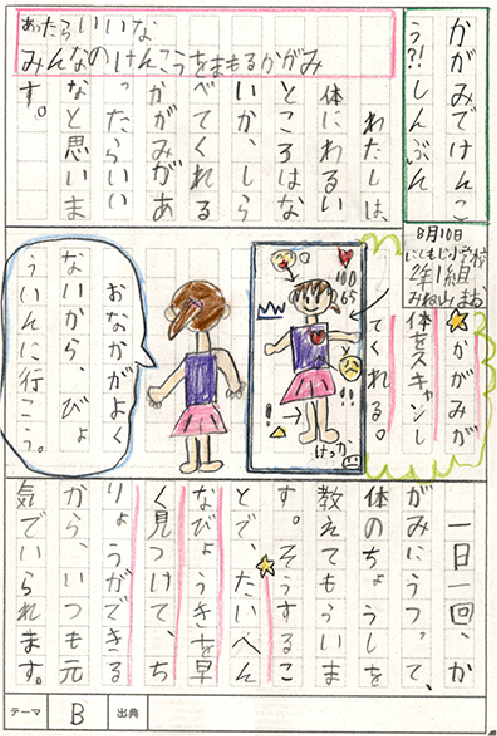 かがみでけんこ
う?!しんぶん
8月10日
2年1組
あったらいいな
みんなのけんこうをまもるかがみ
わたしは、
体にわるい
ところはな
いか、しら
べてくれる
かがみがあ
ったらいい
なと思いま
す。
かがみが
体をスキャンし
てくれる。
100
65
!!
!
はっか
おなかがよく
ないから、びょ
ういんに行こう。
一日一回、か
がみにうつって、
体のちょうしを
教えてもらいま
す。そうするこ
とで、たいへん
なびょうきを早
く見つけて、ち
りょうができる
から、いつも元
気でいられます。
テーマ
B
出典